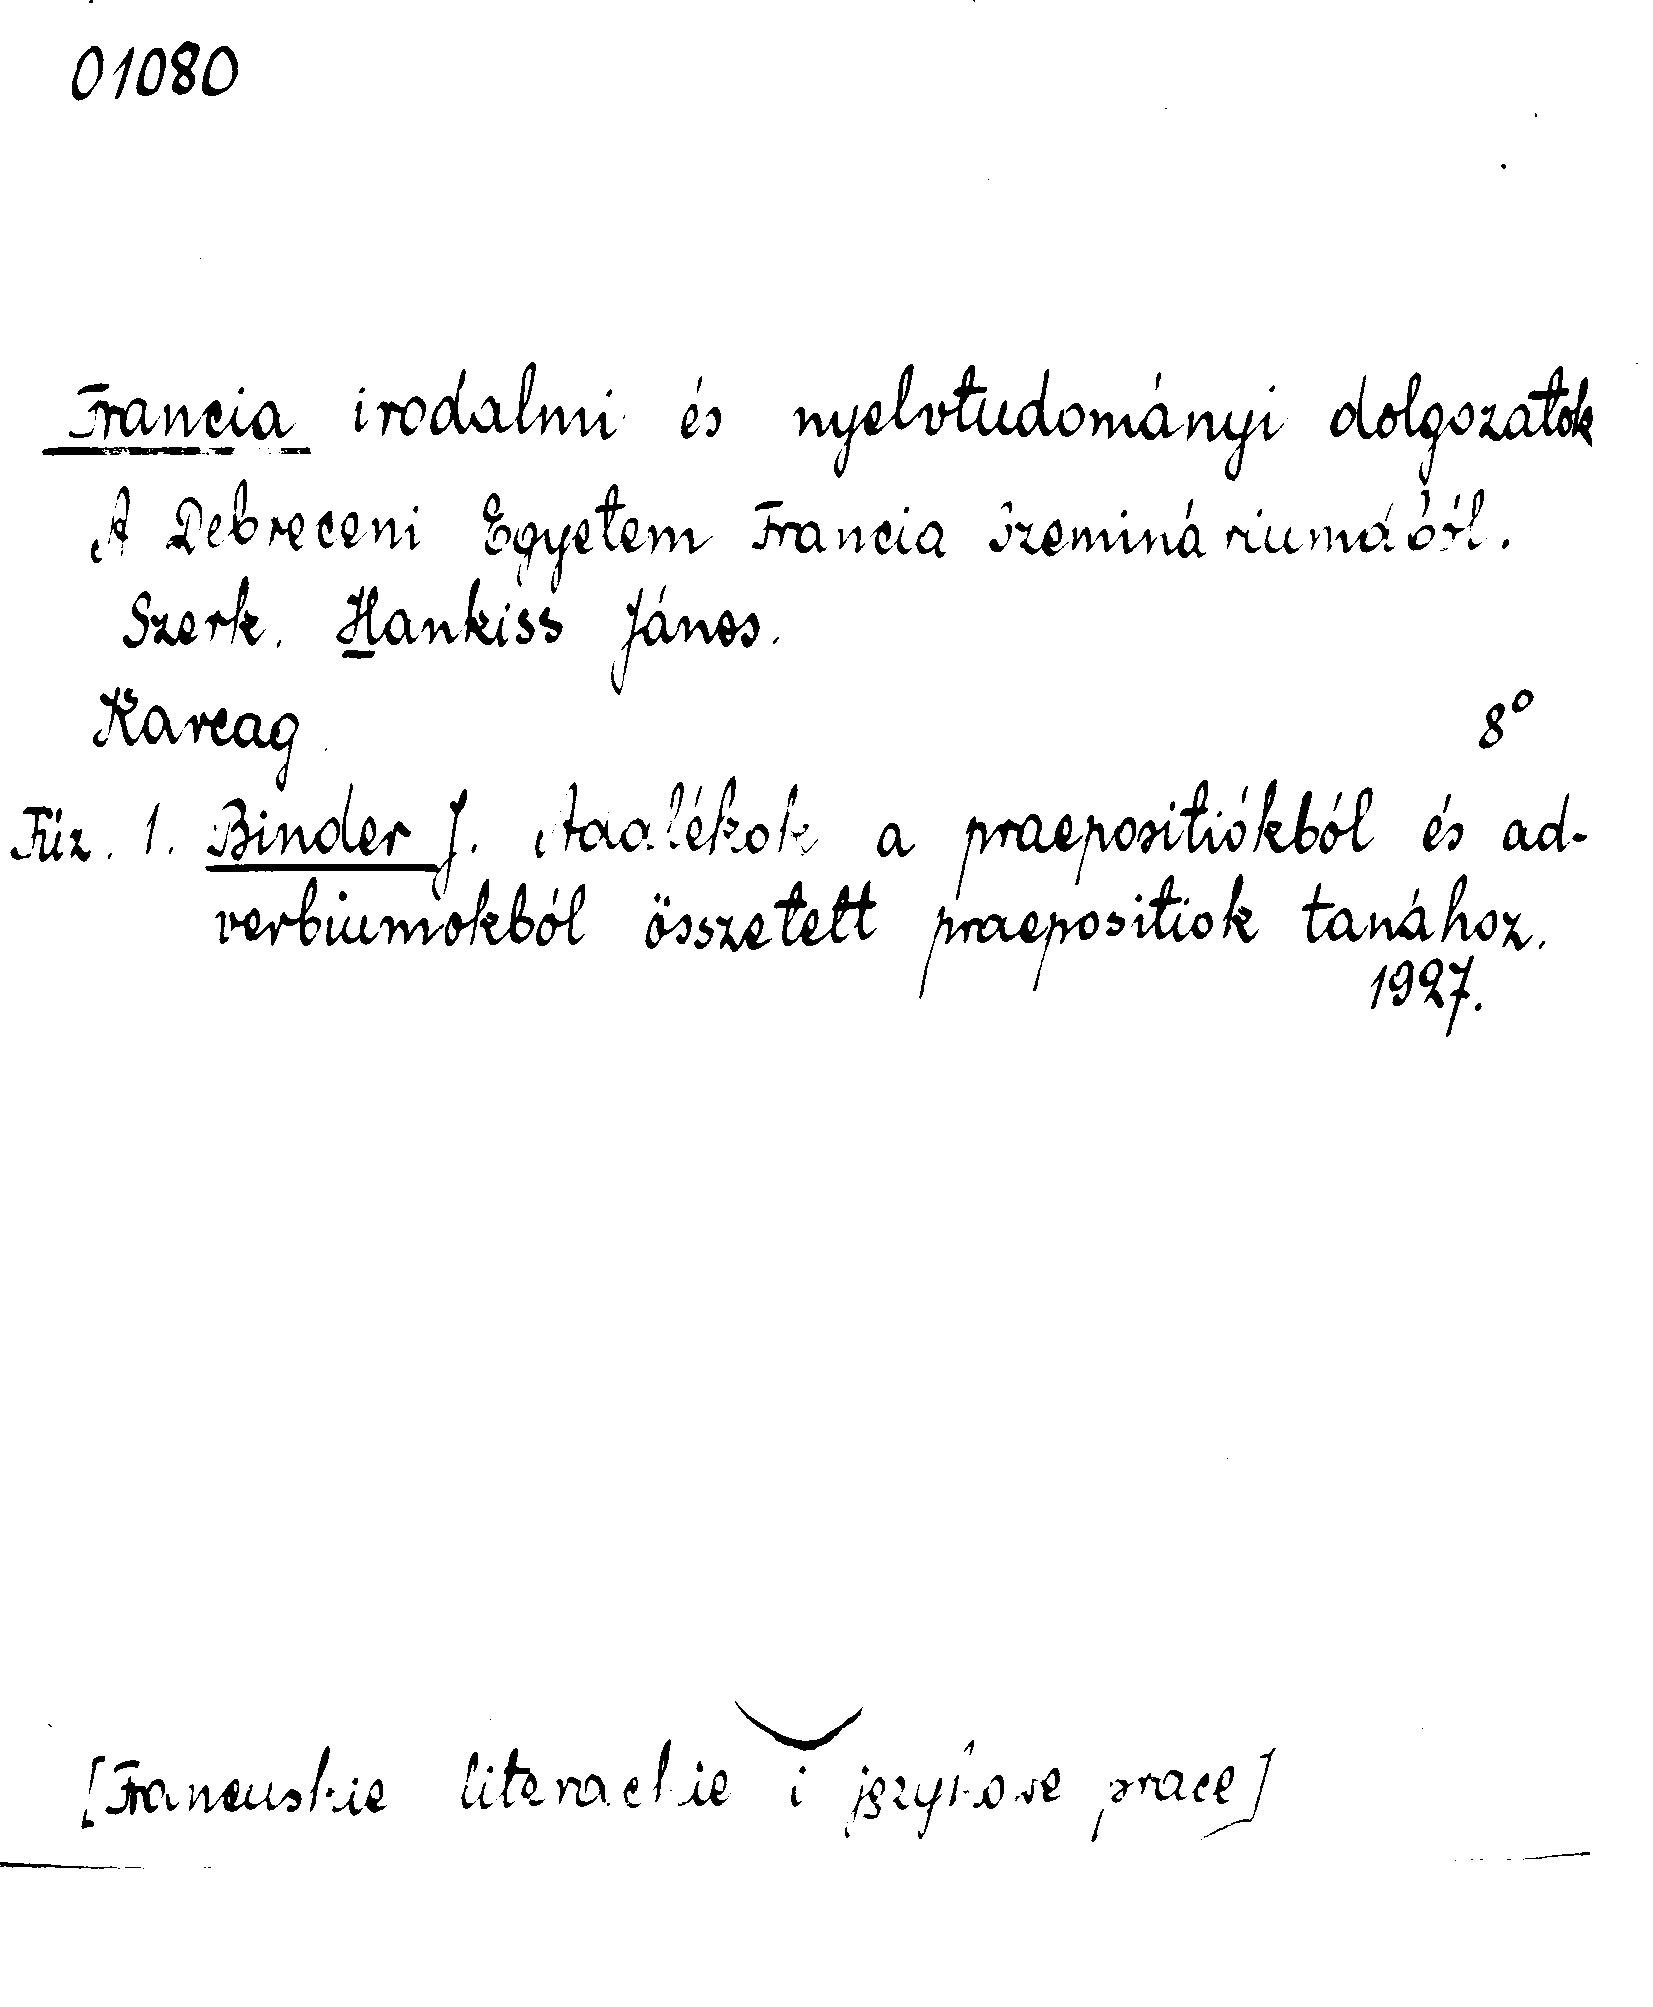 01080
Francia irodalmi és nyelvtudományi dolgozatok
A Debreceni Egyetem Francia Szemináriumából.
Szerk. Hankiss János.
Karcag 8°
Füz. 1. Binder J. Adalékok a praepositiókból és ad-
verbiumokból összetett praepositiok tanához.
1927.
[Francuskie literackie i językowe prace]